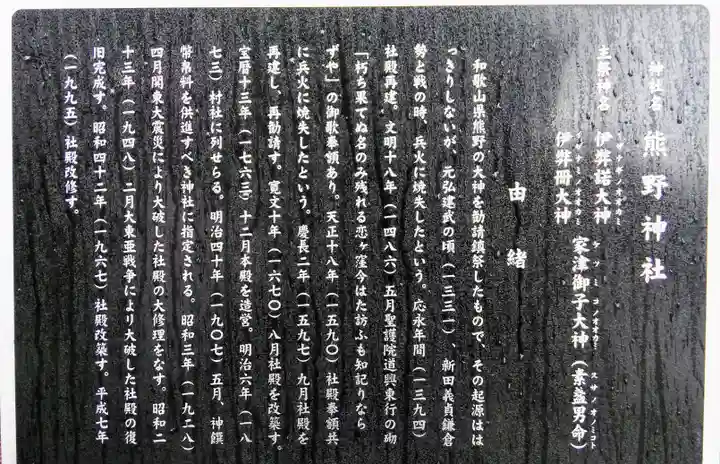 神社名 熊野神社
主祭神名 伊弉諾大神 家津御子大神（素盞男命）
イザナギノオオカミ ケツミコノオオカミ スサノオノミコト
伊弉冊大神
イザナミノオオカミ
由緒
和歌山県熊野の大神を勧請鎮祭したもので、その起源はは
っきりしないが、元弘建武の頃（一三三一）、新田義貞鎌倉
勢と戦の時、兵火に焼失したという。応永年間（一三九四）
社殿再建。文明十八年（一四八六）五月聖護院道興東行の砌
「朽ち果てぬ名のみ残れる恋ヶ窪今はた訪ふも知記りなら
ずや」の御歌奉額あり。天正十八年（一五九〇）社殿奉額共
に兵火に焼失したという。慶長二年（一五九七）九月社殿を
再建し、再勧請す。寛文十年（一六七〇）八月社殿を改築す。
宝暦十三年（一七六三）十二月本殿を造営。明治六年（一八
七三）村社に列せらる。明治四十年（一九〇七）五月、神饌
幣帛料を供進すべき神社に指定される。昭和三年（一九二八）
四月関東大震災により大破した社殿の大修理をなす。昭和二
十三年（一九四八）二月大東亜戦争により大破した社殿の復
旧完成す。昭和四十二年（一九六七）社殿改築す。平成七年
（一九九五）社殿改修す。